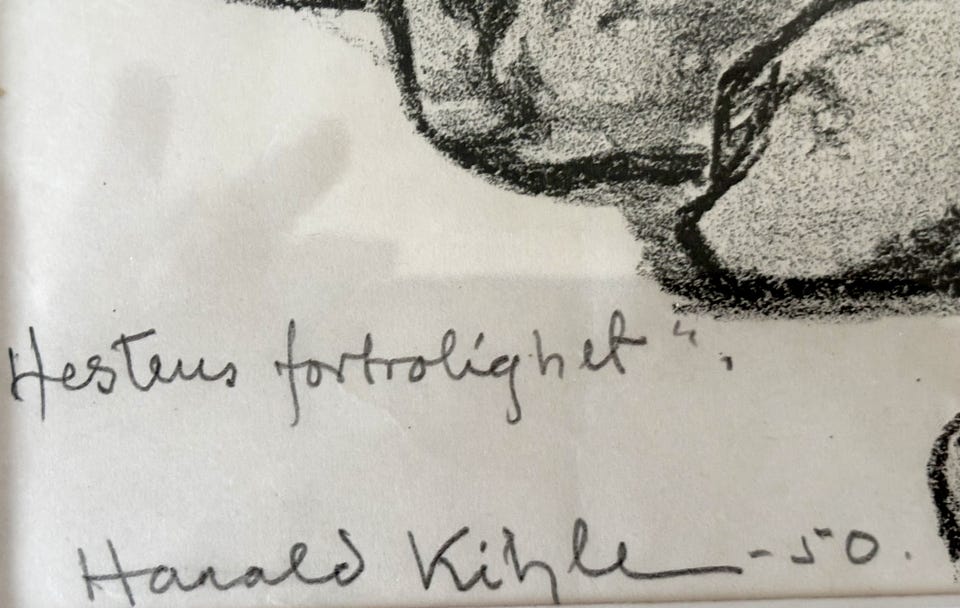 Hestens fortrolighet".
Harald Kihle -50.